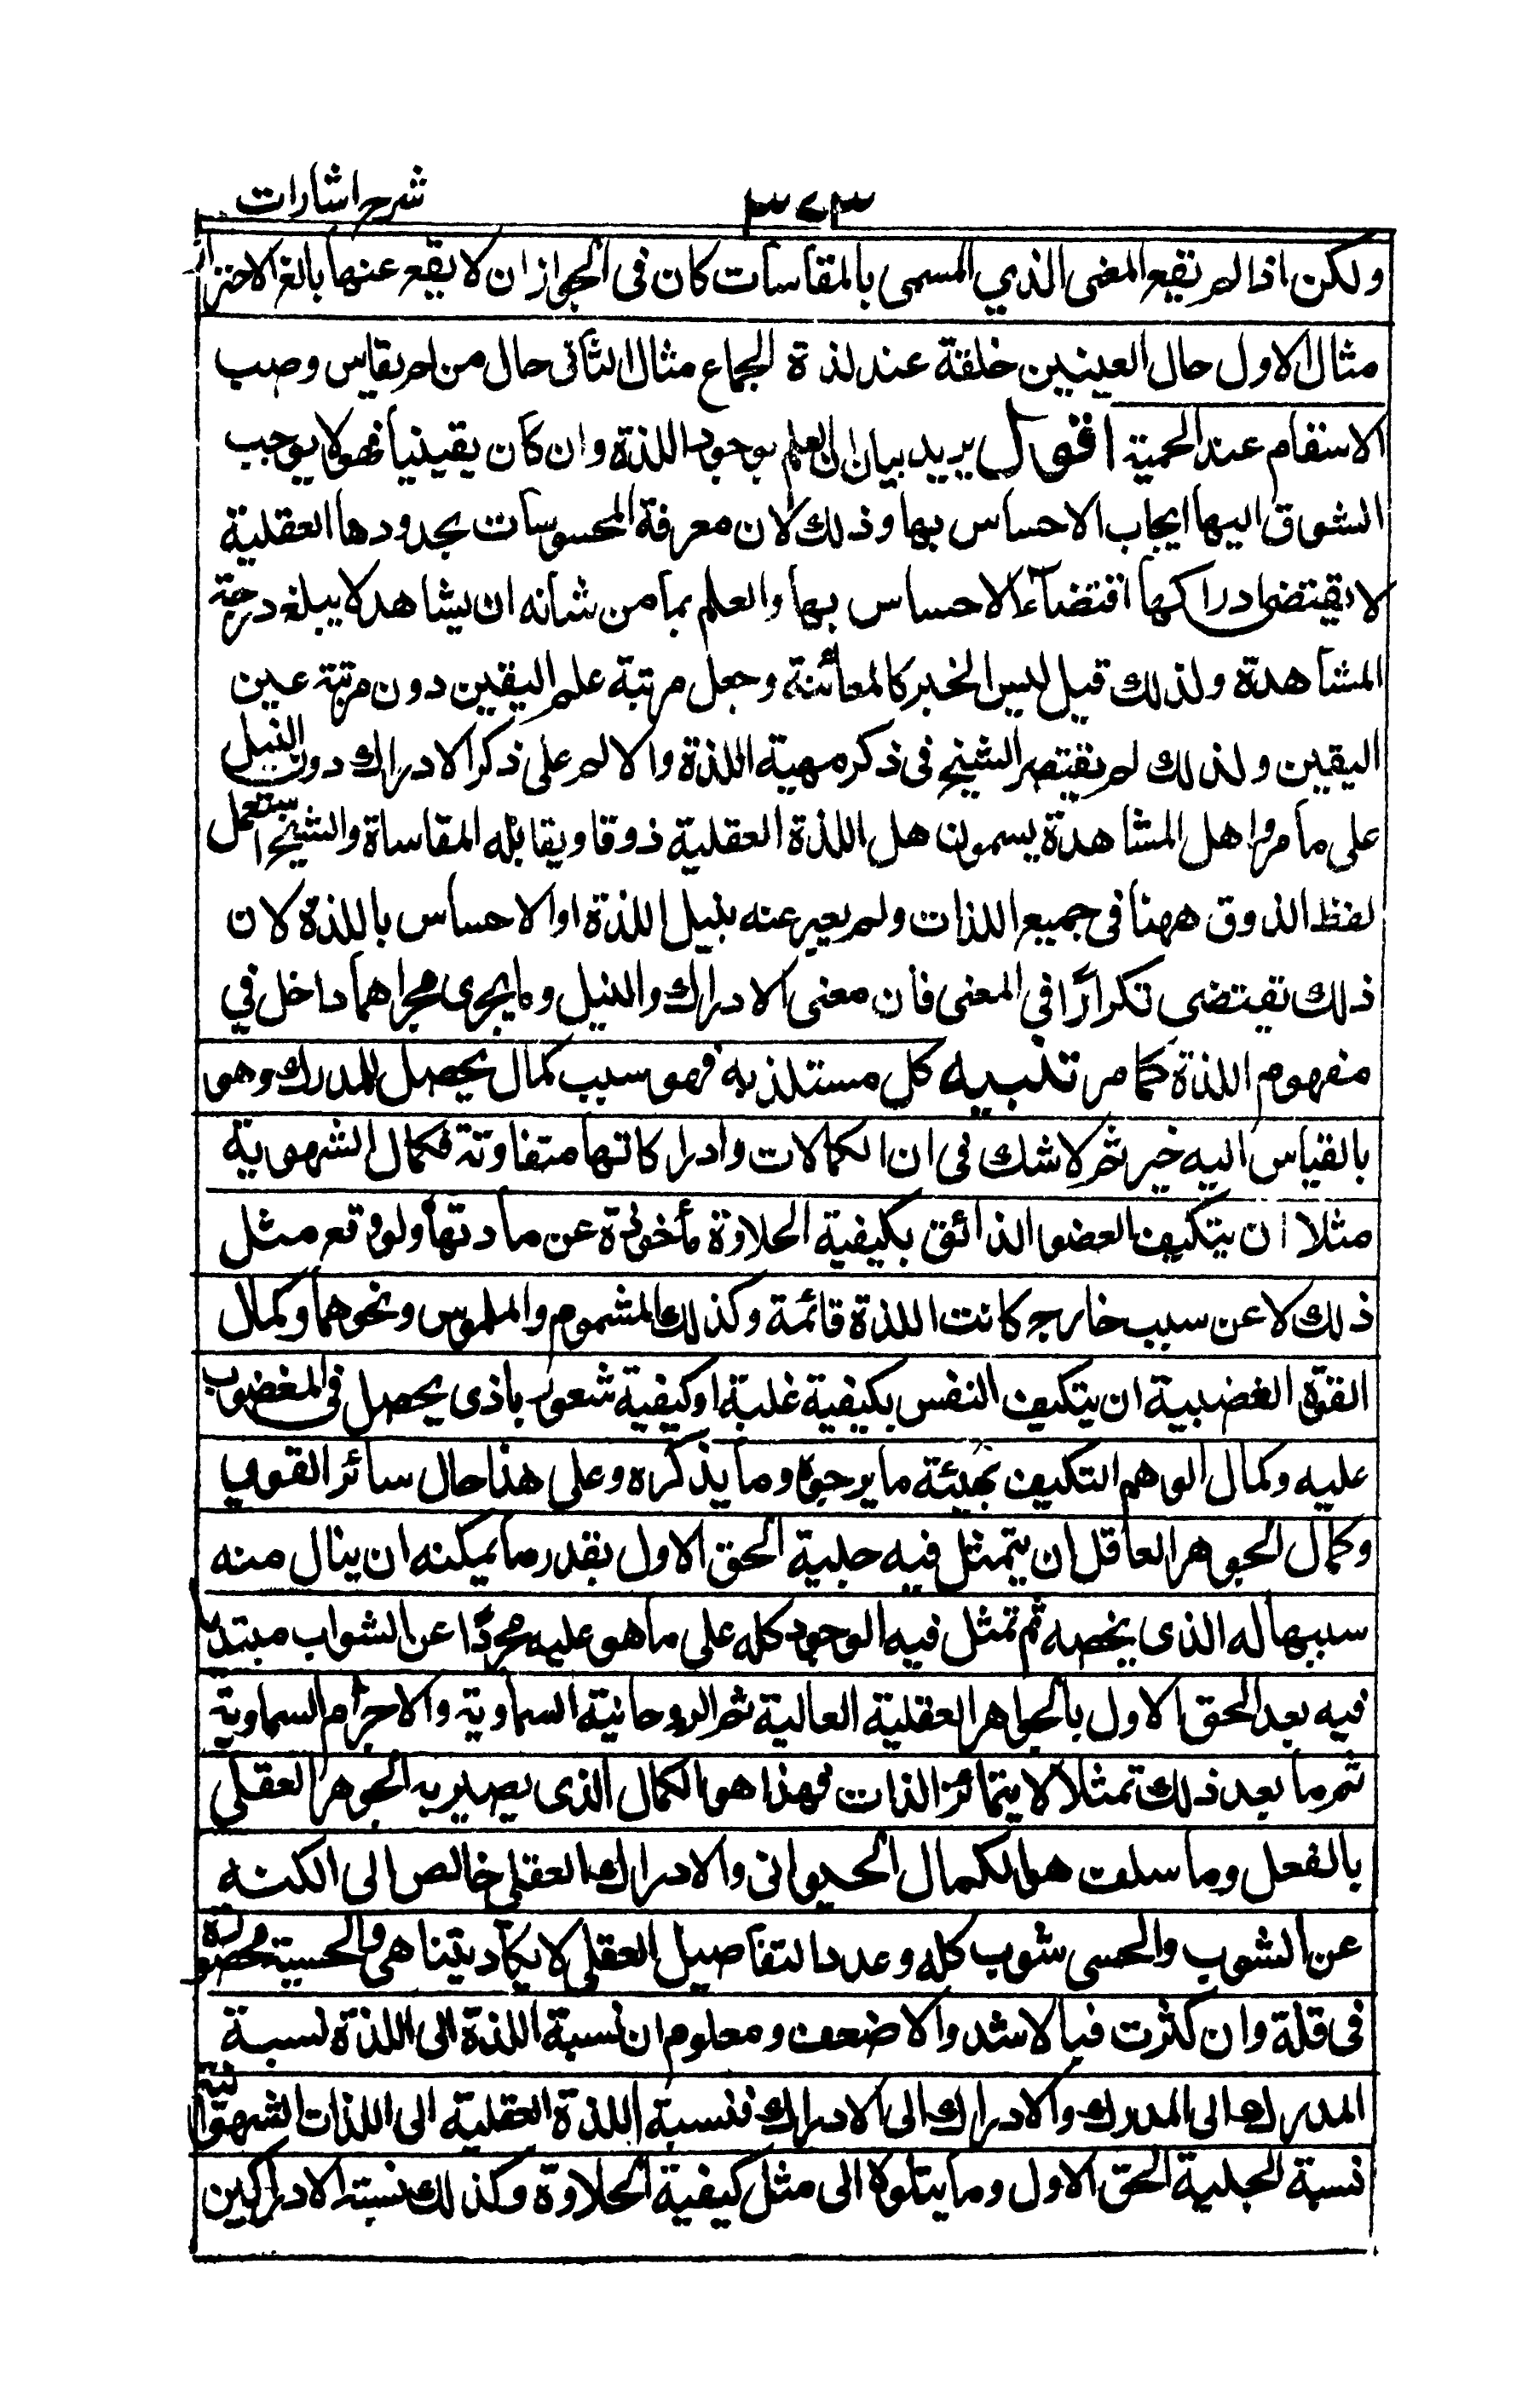 شرح اشارات
٣٤٣
ولكن اذا لم يقع المعنى الذي المسمى بالمقاسات كان فى الجواز ان لا يقع عنها بالغ الاحتراز
مثال الاول حال العينين خلقة عند لذة الجماع مثال الثانى حال من لم يقاس وصب
الاسقام عند الحمية اقول يريد بيان ان العلم بوجود اللذة وان كان يقينيا فهو لا يوجب
الشوق اليها ايجاب الاحساس بها وذلك لان معرفة المحسوسات بحدودها العقلية
لا يقتضى ادراكها اقتضاء الاحساس بها والعلم بما من شانه ان يشاهد لا يبلغ درجة
المشاهدة ولذلك قيل ليس الخبر كالمعائنة وجعل مرتبة علم اليقين دون مرتبة عين
اليقين ولذلك لم يقتصر الشيخ فى ذكر مهية اللذة والالم على ذكر الادراك دون النيل
على ما مر واهل المشاهدة يسمون هل اللذة العقلية ذوقا ويقابله المقاساة والشيخ استعمل
لفظ الذوق ههنا فى جميع اللذات ولم يعبر عنه بنيل اللذة او الاحساس باللذة لان
ذلك يقتضى تكرارًا في المعنى فان معنى الادراك والنيل وما يجرى مجراهما داخل في
مفهوم اللذة كما مر تنبيه كل مستلذ به فهو سبب كمال يحصل للمدرك وهو
بالقياس اليه خير ثم لا شك فى ان الكمالات وادراكاتها متفاوتة فكمال الشهوية
مثلا ان يتكيف العضو الذائق بكيفية الحلاوة مأخوذة عن مادتها ولو وقع مثل
ذلك لا عن سبب خارج كانت اللذة قائمة وكذلك المشموم والملموس ونحوهما وكمال
القوة الغضبية ان يتكيف النفس بكيفية غلبة او كيفية شعور باذى يحصل فى المغضوب
عليه وكمال الوهم التكيف بهيئة ما يرجوه وما يذكره وعلى هذا حال سائر القوى
وكمال الجوهر العاقل ان يتمثل فيه جلية الحق الاول بقدر ما يمكنه ان ينال منه
سببها له الذى يخصه ثم تمثل فيه الوجود كله على ما هو عليه مجردًا عن الشواب مبتديا
فيه بعد الحق الاول بالجواهر العقلية العالية ثم الروحانية السماوية والاجرام السماوية
ثم ما بعد ذلك تمثلا لا يتمائز الذات فهذا هو الكمال الذى يصير به الجوهر العقلي
بالفعل وما سلف هو الكمال الحيوانى والادراك العقلى خالص الى الكنه
عن الشوب والحسى شوب كله وعدد التفاصيل العقلى لا يكاد يتناهى والحسية محصورة
فى قلة وان كثرت فبالاشد والاضعف ومعلوم ان نسبة اللذة الى اللذة نسبة
المدرك الى المدرك والادراك الى الادراك فنسبة اللذة العقلية الى اللذات الشهوانية
نسبة الجلية الحق الاول وما يتلوه الى مثل كيفية الحلاوة وكذلك نسبة الادراكين